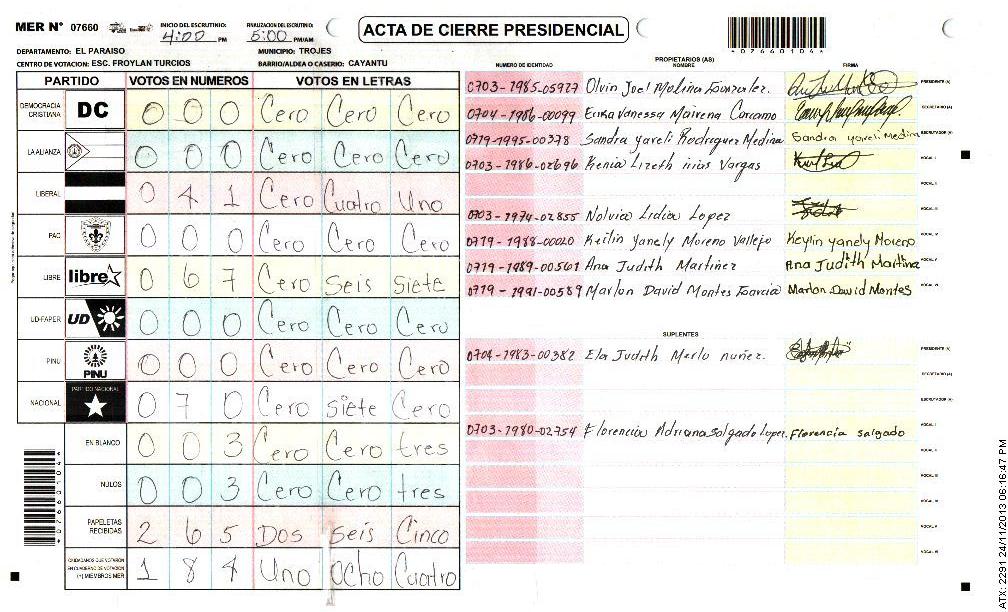 MER N° 07660 INICIO DEL ESCRUTINIO: 4:00 PM FINALIZACION DEL ESCRUTINIO: 5:00 PM/AM ACTA DE CIERRE PRESIDENCIAL
DEPARTAMENTO: EL PARAISO MUNICIPIO: TROJES
CENTRO DE VOTACION: ESC. FROYLAN TURCIOS BARRIO/ALDEA O CASERIO: CAYANTU
PARTIDO VOTOS EN NUMEROS VOTOS EN LETRAS
DEMOCRACIA CRISTIANA DC 0 0 0 Cero Cero Cero
LA ALIANZA 0 0 0 Cero Cero Cero
LIBERAL 0 4 1 Cero Cuatro Uno
PAC 0 0 0 Cero Cero Cero
LIBRE libre 0 6 7 Cero Seis Siete
UD-FAPER UD 0 0 0 Cero Cero Cero
PINU PINU 0 0 0 Cero Cero Cero
NACIONAL PARTIDO NACIONAL 0 7 0 Cero Siete Cero
EN BLANCO 0 0 3 Cero Cero tres
NULOS 0 0 3 Cero Cero tres
PAPELETAS RECIBIDAS 2 6 5 Dos Seis Cinco
CIUDADANOS QUE VOTARON EN CUADERNO DE VOTACION (+) MIEMBROS MER 1 8 4 Uno Ocho Cuatro
07660104
PROPIETARIOS (AS)
NUMERO DE IDENTIDAD NOMBRE FIRMA
0703-1985-05927 Olvin Joel Molina Gonzalez. PRESIDENTE (A)
0704-1986-00099 Erika Vanessa Mairena Carcamo SECRETARIO (A)
0719-1995-00378 Sandra Yareli Rodriguez Medina Sandra yareli Medina ESCRUTADOR (A)
0703-1986-02696 Kenia Lizeth irias Vargas VOCAL I
VOCAL II
0703-1974-02855 Nolvia Lidia Lopez VOCAL III
0719-1988-00020 Keilin yanely Moreno Vallejo Keylin yanely Moreno VOCAL IV
0719-1989-00561 Ana Judith Martinez Ana Judith Martina VOCAL V
0719-1991-00589 Marlon David Montes Garcia Marlon David Montes VOCAL VI
SUPLENTES
0704-1983-00382 Ela Judith Merlo nuñez. PRESIDENTE (A)
SECRETARIO (A)
ESCRUTADOR (A)
0703-1980-02754 Florencia Adriana Salgado Lopez. Florencia salgado VOCAL I
VOCAL II
VOCAL III
VOCAL IV
VOCAL V
VOCAL VI
ATX: 2291 24/11/2013 06:16:47 PM